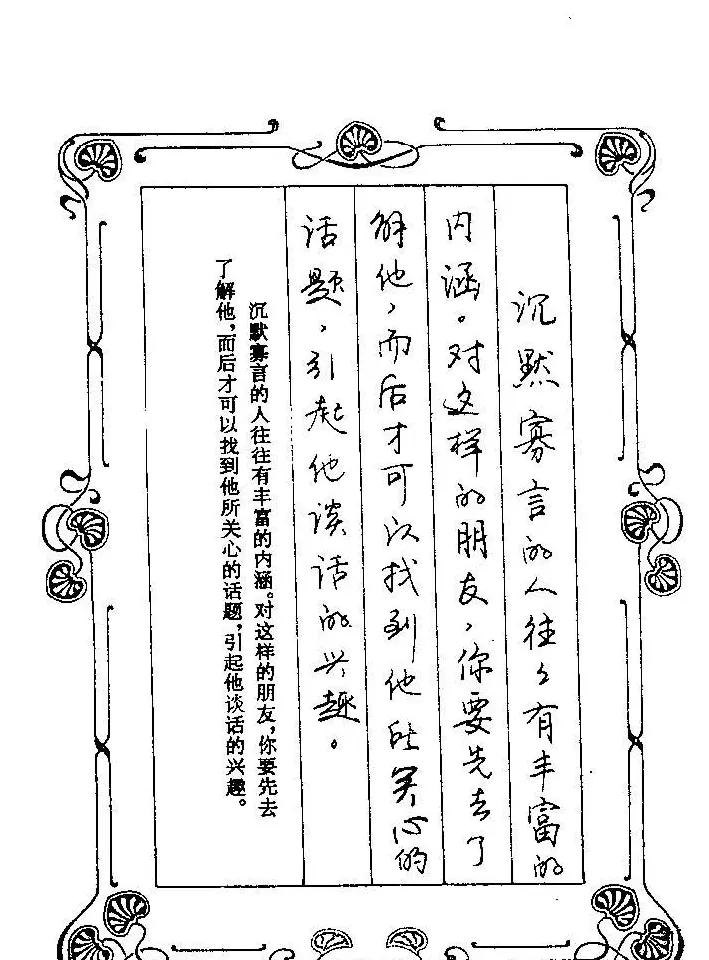 沉默寡言的人往々有丰富的
内涵。对这样的朋友，你要先去了
解他，而后才可以找到他所关心的
话题，引起他谈话的兴趣。
沉默寡言的人往往有丰富的内涵。对这样的朋友，你要先去
了解他，而后才可以找到他所关心的话题，引起他谈话的兴趣。